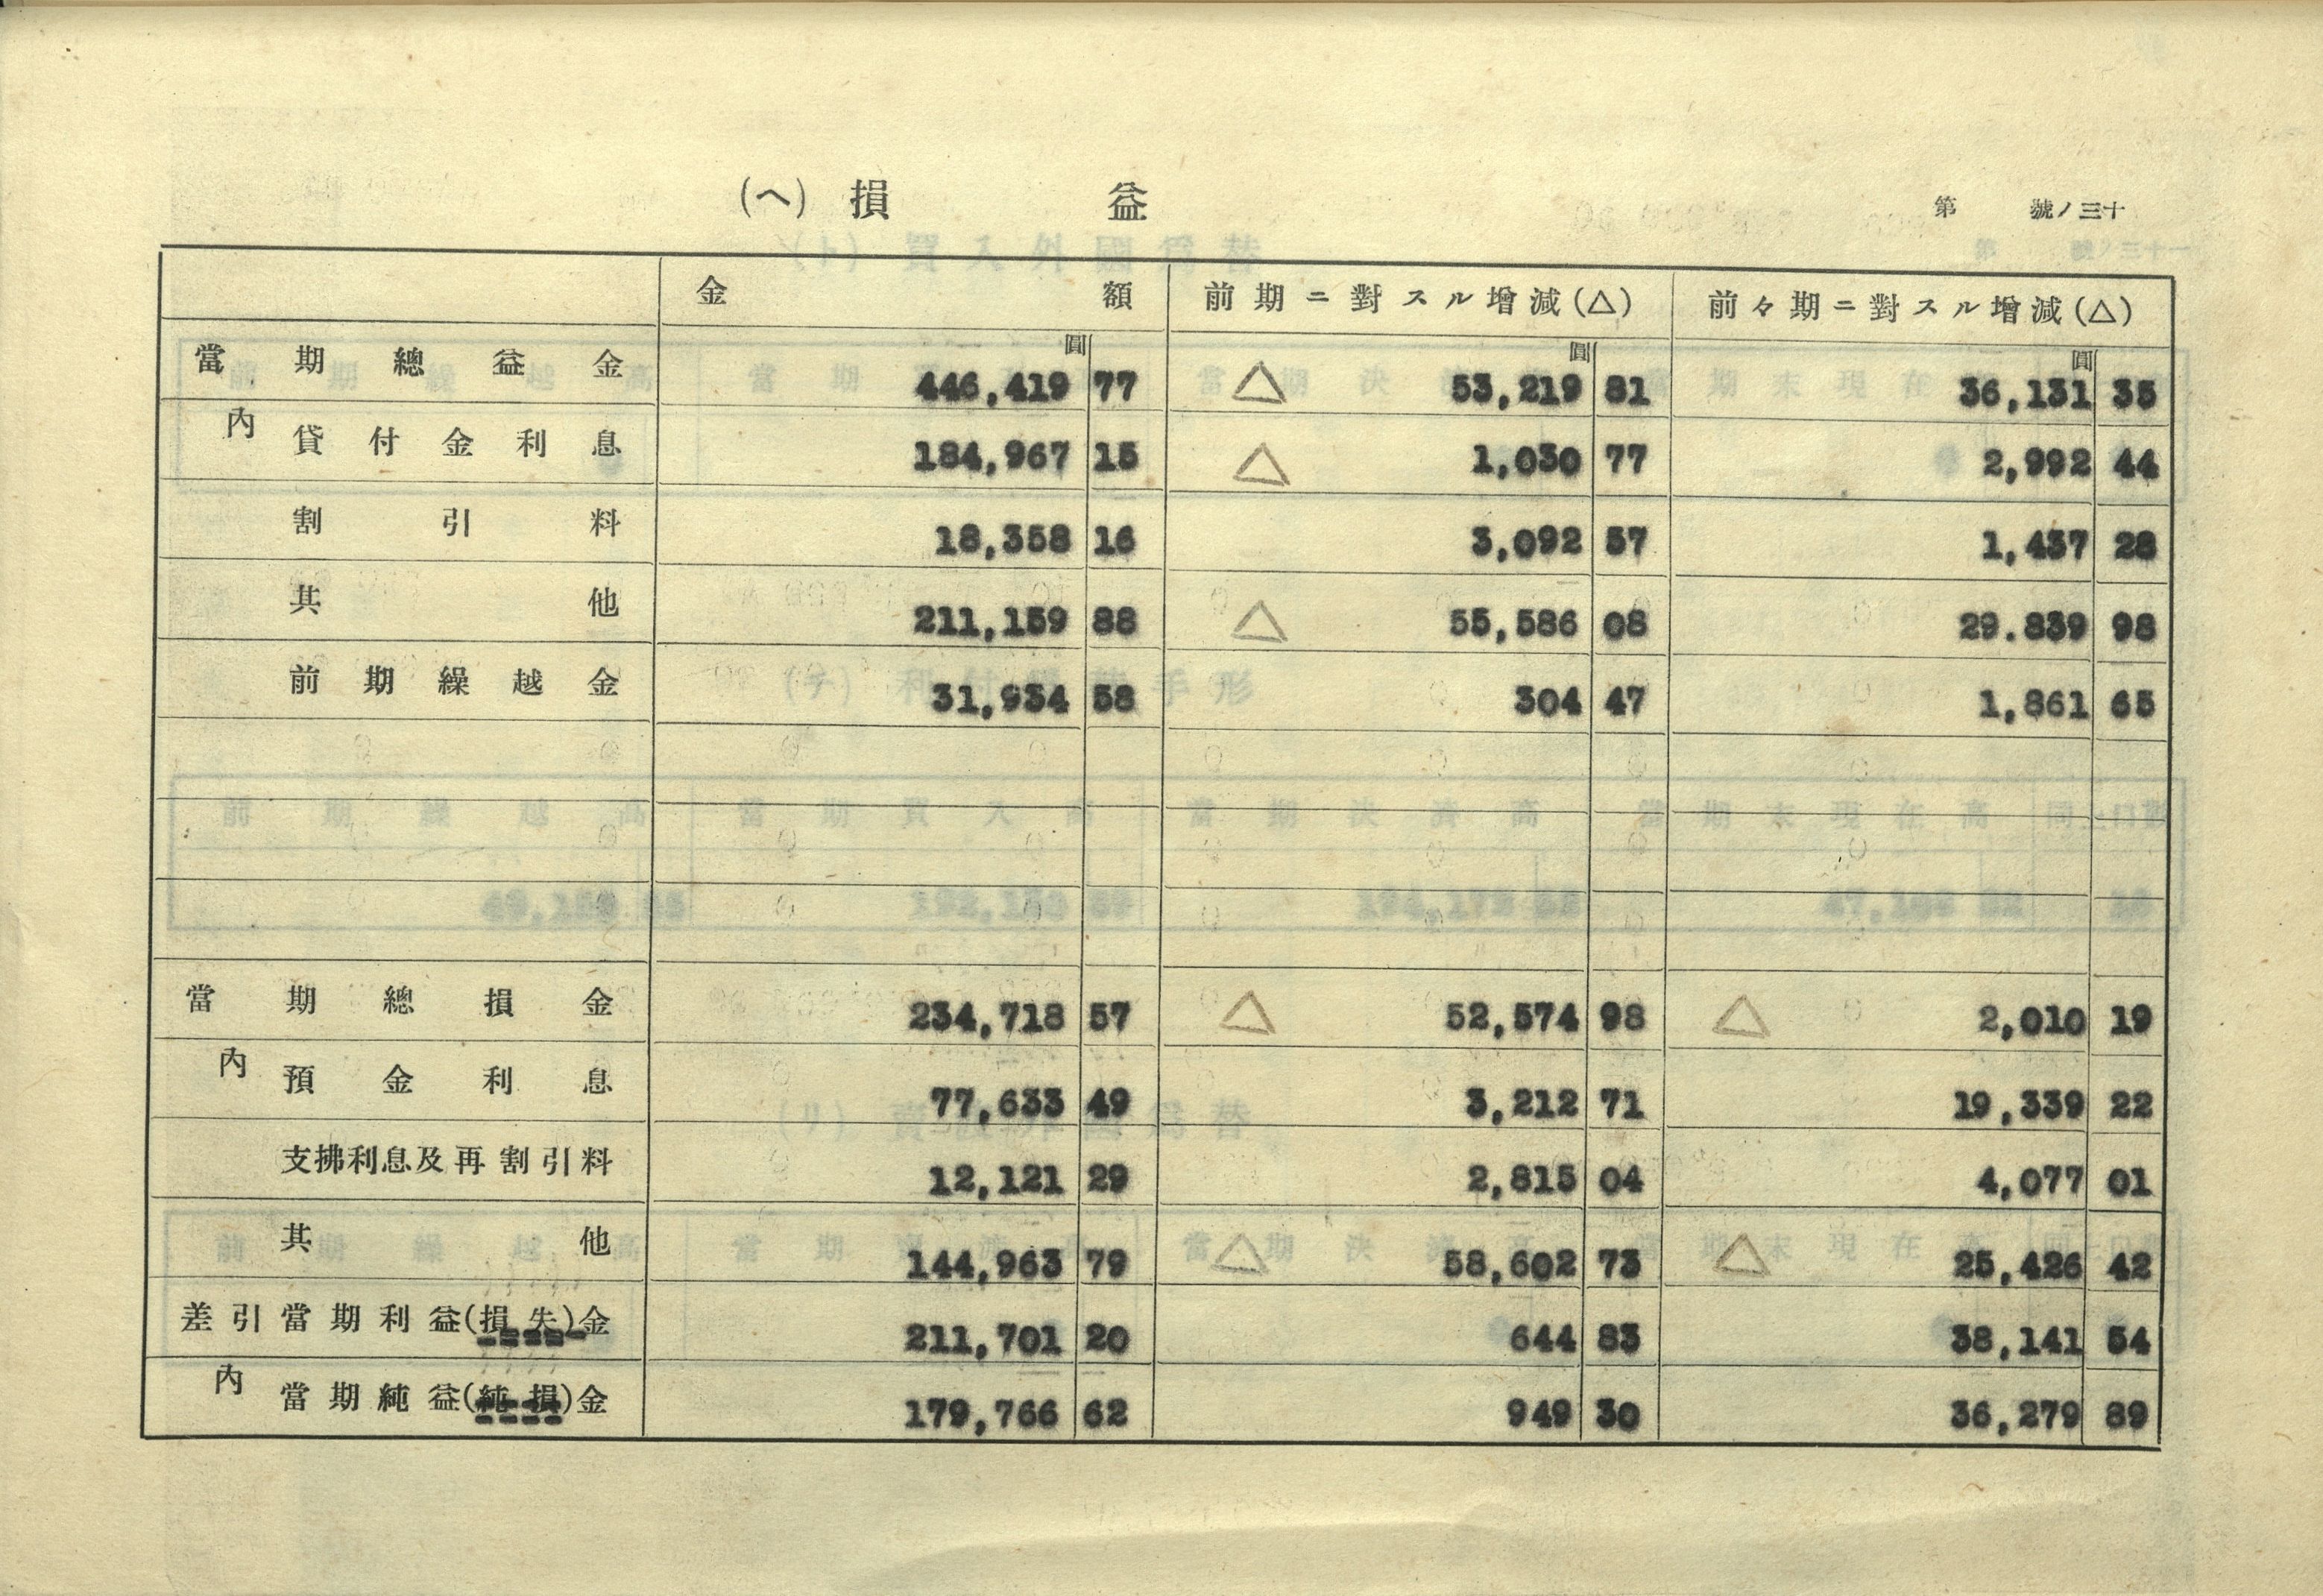 (ヘ) 損 益
第 號ノ三十
金 額 前期ニ對スル增減(△) 前々期ニ對スル增減(△)
圓 圓 圓
當期總益金 446,419 77 △ 53,219 81 36,131 35
內 貸付金利息 184,967 15 △ 1,030 77 2,992 44
割引料 18,358 16 3,092 57 1,437 28
其他 211,159 88 △ 55,586 08 29.839 98
前期繰越金 31,934 58 304 47 1,861 65
當期總損金 234,718 57 △ 52,574 98 △ 2,010 19
內 預金利息 77,633 49 3,212 71 19,339 22
支拂利息及再割引料 12,121 29 2,815 04 4,077 01
其他 144,963 79 △ 58,602 73 △ 25,426 42
差引當期利益(損失)金 211,701 20 644 83 38,141 54
內 當期純益(純損)金 179,766 62 949 30 36,279 89